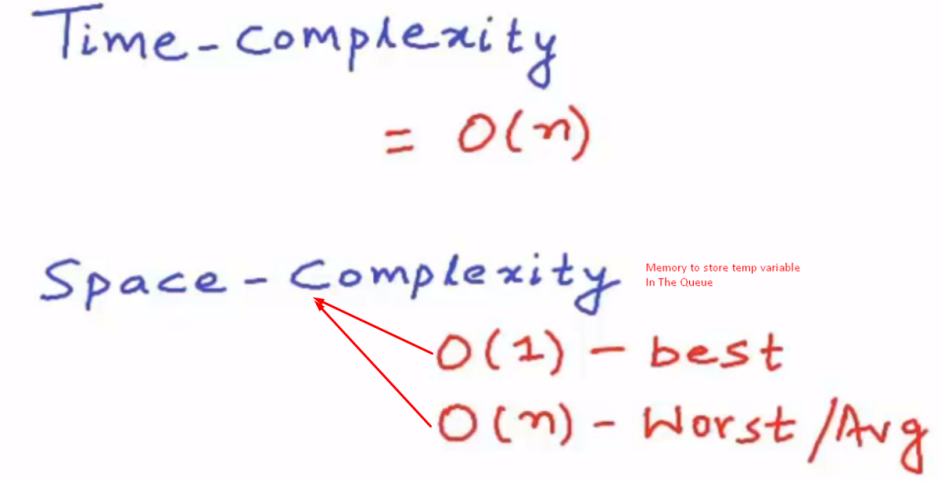 Time-complexity
= O(n)
Space-Complexity
Memory to store temp variable
In The Queue
O(1) - best
O(n) - Worst/Avg